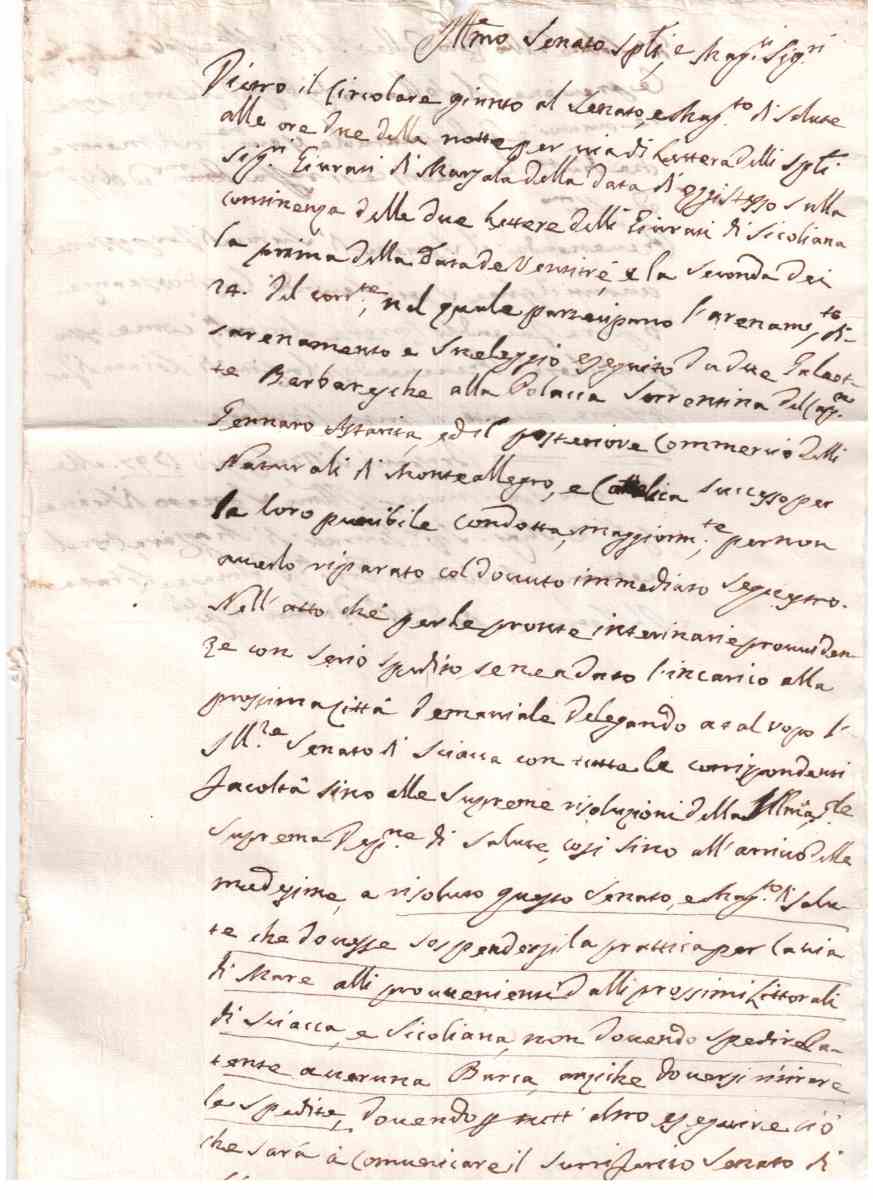 Ill.mo Senato Sp.li, e Mag.ci Sig.ri
Dietro il Circolare giunto al Senato, e Mag.to di Salute
alle ore due della notte per via di Lettera delli Sp.li
Sig.ri Giurati di Marsala della data di oggi stesso sulla
continenza delle due Lettere delli Giurati di Sicoliana
la prima della Data de Ventitrè, e la seconda dei
24. del corr.te, nel quale partecipano l'arenam.to, di-
sarenamento e svaleggio eseguito da due Galeot-
te Barbaresche alla Polacca Sorrentina del Cap.n
Gennaro Astarita, ed il posteriore Commercio delli
Naturali di Monteallegro, e Cattolica successo per
la loro punibile condotta, maggiorm.te per non
averlo riparato col dovuto immediato sequestro.
Nell'atto che per le pronte interinarie providen-
ze con serio spedito se ne a dato l'incarico alla
prossima Città Demaniale delegando a tal uopo l'
Ill.re Senato di Sciacca con tutte le corrispondenti
facoltà sino alle Supreme risoluzioni della Ill.ma, g.le
Suprema Dep.ne di Salute, così sino all'arrivo delle
medesime, a risoluto questo Senato, e Mag.to di Salu-
te che dovesse sospendersi la prattica per la via
di Mare alli provenienti dalli prossimi Littorali
di Sciacca, e Sicoliana, non dovendo spedire Pa-
tente a veruna Barca, anziche doversi ritirare
le spedite, dovendo p tutt'altro eseguire ciò
che sarà à comunicare il surriferito Senato di